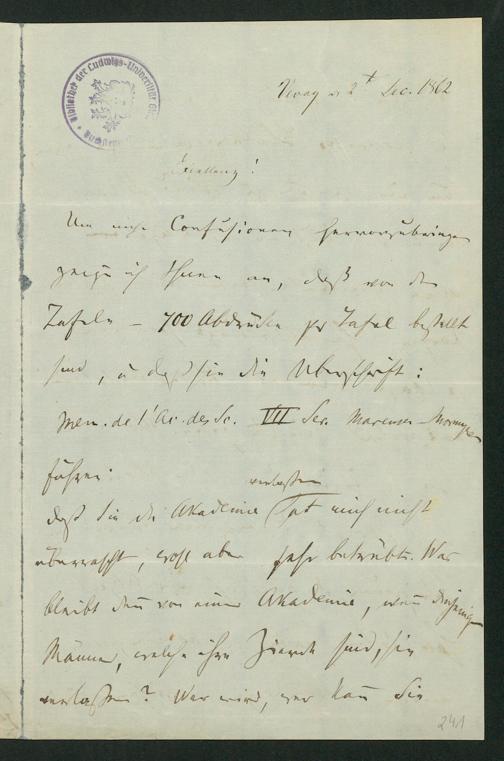 Bibliothek der Ludwigs-Universität
2t Dec. 1862
Excellenz!
Um nicht Confusionen hervorzubringen
zeige ich Ihnen an, daß von den
Tafeln – 700 Abdrücke pr Tafel bestellt
sind, u daß sie die Überschrift:
Mem. de l'Ac. des Sc. VII Ser.
führen.
verlassen
daß Sie die Akademie hat mich nicht
überrascht, wohl aber sehr betrübt. Was
bleibt denn von einer Akademie, wenn diejenigen
Männer, welche ihre Zierde sind, sie
verlassen? Wer wird, wer kann Sie
241